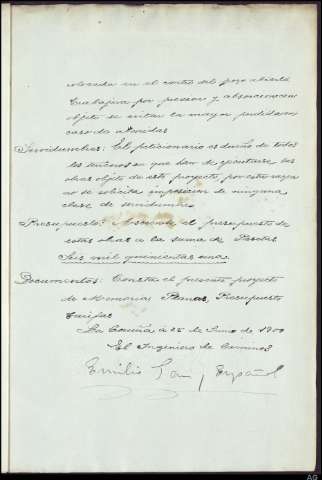 olocada en el centro del pozo abierto
trabajará por presion y absorcion con
objeto de evitar la mayor pérdida en
caso de avenidas
Servidumbres: El peticionario es dueño de todos
los terrenos en que han de ejecutarse las
obras objeto de este proyecto por esta razon
no se solicita imposicion de ninguna
clase de servidumbre
Presupuesto: Asciende el presupuesto de
estas obras a la suma de Pesetas
Seis mil quinientas una
Documentos: Consta el presente proyecto
de Memoria, Planos, Presupuesto
tarifas
La Coruña á 25 de de 1900
El Ingeniero de Caminos
Emilio y Español
AG